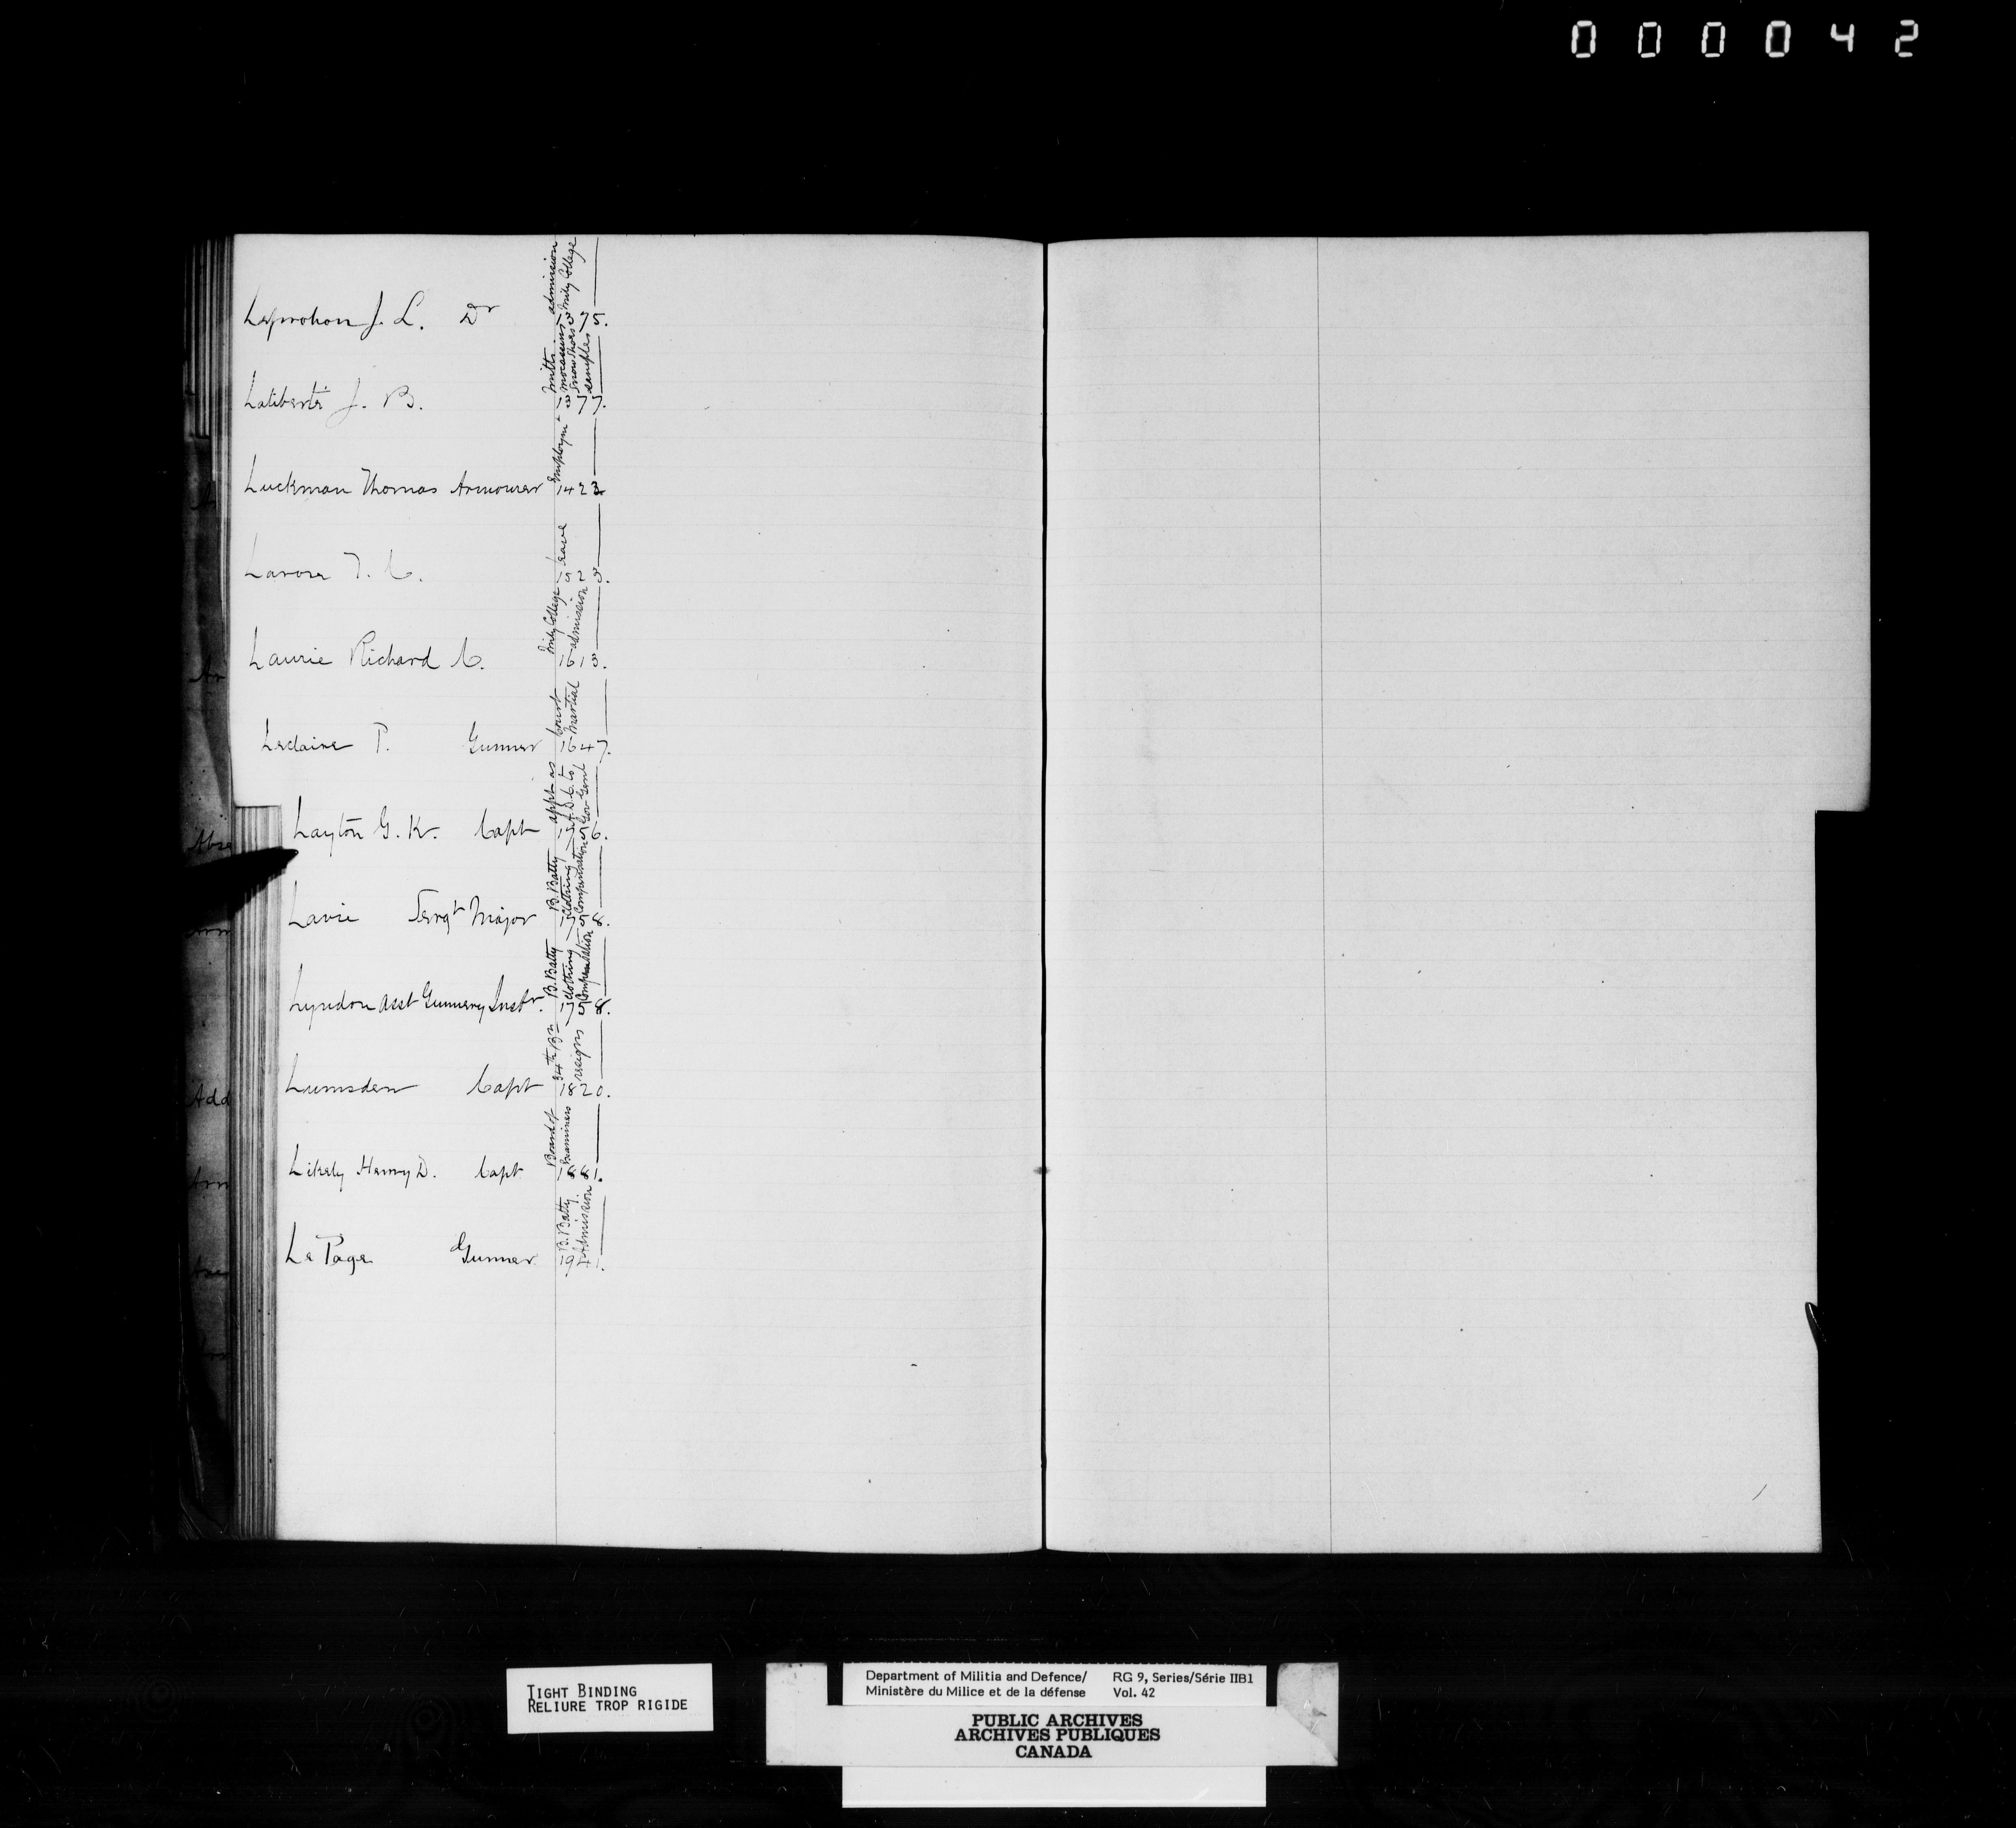 000042
admission
Mily College
Leprohon J. L. Dr 1375.
mitts
mocassins
snow shoes
samples
Laliberté J. B. 1377.
Employmt
Luckman Thomas Armourer 1423
leave
T. C.
Mily College
admission
Laurie Richard C. 1613.
Court
Martial
Leclaire P. Gunner 1647.
appt as
A.D.C. to
Gov Genl
Layton G. K. Capt
B. Batty
clothing
Compensation
Lavie Sergt Major 1758.
B. Batty
clothing
Compensation
Lyndon Asst Gunnery Instr. 1758.
34th Bn
resigns
Lumsden Capt 1820.
Board of
Examiners
Likely Henry D. Capt 1881.
B. Batty
Admission
Le Page Gunner
TIGHT BINDING
RELIURE TROP RIGIDE
Department of Militia and Defence/ RG 9, Series/Série IIB1
Ministère du Milice et de la défense Vol. 42
PUBLIC ARCHIVES
ARCHIVES PUBLIQUES
CANADA